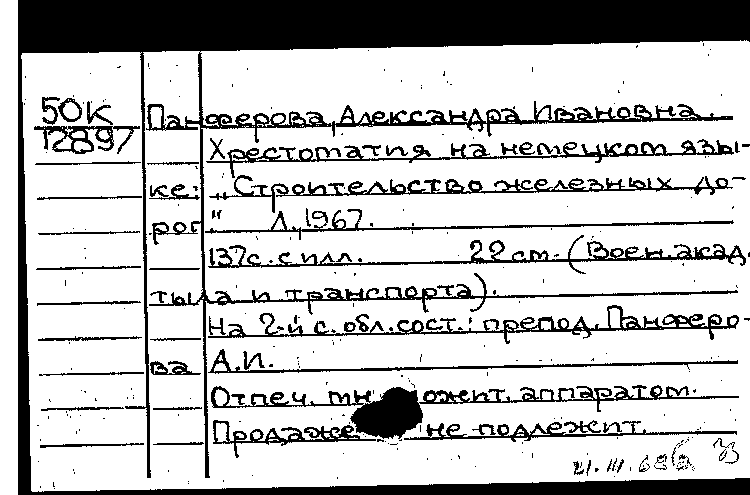 50К Панферова, Александра Ивановна.
12897 Хрестоматия на немецком язы-
ке: „Строительство железных до-
рог." Л., 1967.
137с. с илл. 22 см. (Воен. акад.
тыла и транспорта).
На 2-й с. обл. сост.: препод. Панферо-
ва А.И.
Отпеч. множит. аппаратом.
Продаже не подлежит.